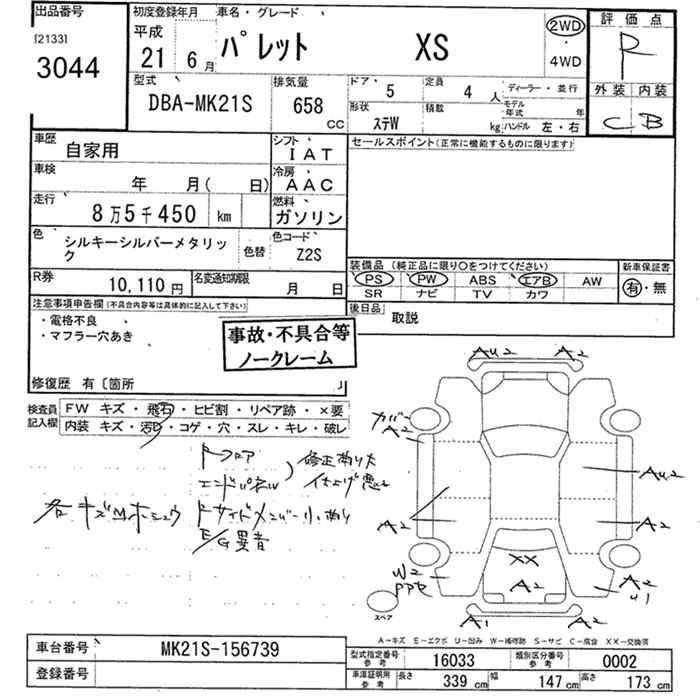 出品番号
[2133]
3044
初度登録年月
平成
21年6月
車名・グレード
パレット XS
2WD
・
4WD
評価点
R
外装 内装
C B
型式
DBA-MK21S
排気量
658
cc
ドア 5
定員 4人
ディーラー・並行
形状 ステW
積載 kg
モデル年式 年
ハンドル 左・右
車歴 自家用
シフト IAT
セールスポイント(正常に機能するものに限ります)
車検 年 月( 日)
冷房 AAC
走行 8万5千450 km
燃料 ガソリン
色 シルキーシルバーメタリック
色替
色コード Z2S
装備品(純正品に限り○をつけてください)
新車保証書
PS PW ABS エアB AW
SR ナビ TV カワ
有・無
R券 10,110円
名変通知期限 月 日
後日品 取説
注意事項申告欄(不具合内容等は具体的に記入して下さい)
・電格不良
・マフラー穴あき
事故・不具合等
ノークレーム
修復歴 有〔箇所 〕
検査員記入欄
FW キズ・飛石・ヒビ割・リペア跡・×要
内装 キズ・汚れ・コゲ・穴・スレ・キレ・破レ
トフロア
エンドパネル
修正あり大
仕上げ悪
各キズMホショウ
Fサイドメンバー小あり
E/G異音
AU2 A2
カバー
A2
AU2
A2 A2
W2
XX
A2
A2
U1
A1 A2
スペア
A-キズ E-エクボ U-凹み W-補修跡 S-サビ C-腐食 XX-交換済
車台番号 MK21S-156739
登録番号
型式指定番号 参考 16033
類別区分番号 参考 0002
車庫証明用 参考
長さ 339 cm
幅 147 cm
高さ 173 cm